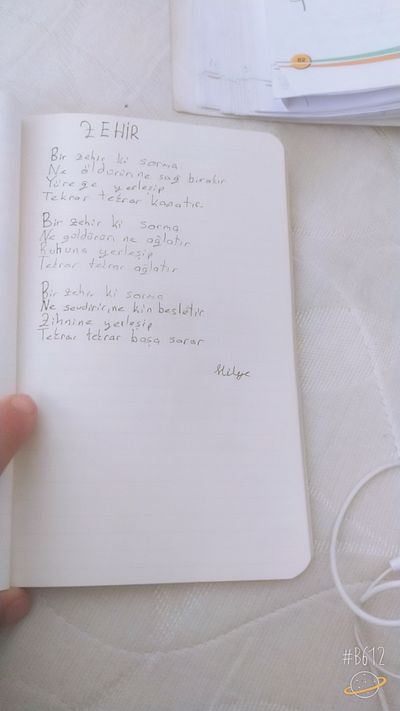 ZEHİR
Bir zehir ki sorma
Ne öldürür, ne sağ bırakır
Yüreğe yerleşip
Tekrar tekrar kanatır.
Bir zehir ki sorma
Ne güldürür, ne ağlatır
Ruhuna yerleşip
Tekrar tekrar ağlatır
Bir zehir ki sorma
Ne sevdirir, ne kin besletir
Zihnine yerleşip
Tekrar tekrar başa sarar
82
#B612